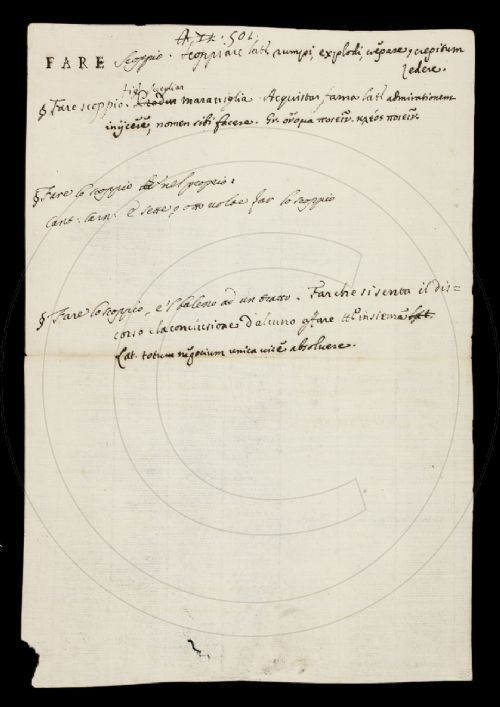 501.
FARE scoppio. scoppiare lat. rumpi, explodi, crepare, crepitum
edere.
§ Fare scoppio. maraviglia. Acquistar fama lat. admirationem
injicere, nomen sibi facere. Gr. ὄνομα ποιεῖν. κλέος ποιεῖν.
§ Fare lo scoppio
Cant. Carn. E sette, o otto volte far lo scoppio
§ Fare lo scoppio, e 'l baleno ad un tratto. Far che si senta il dis=
corso e la conclusione d'alcuno affare insieme lat.
Lat. totum negocium unica vice absolvere.